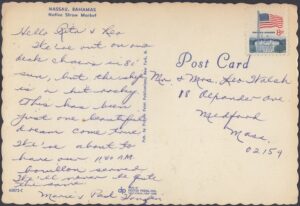 NASSAU, BAHAMAS
Native Straw Market
Hello Rita & Leo
We're out on our
desk chairs in 81°
sun, but the sky
is a bit rocky
This has been
just one beautiful
dream come true
We're about to
have our 11:00 AM
bouillon served
We'll never be quite
the same
Marie & Bud
Post Card
Mr & Mrs. Leo Walsh
18 Alexander Ave
Medford
Mass.
02154